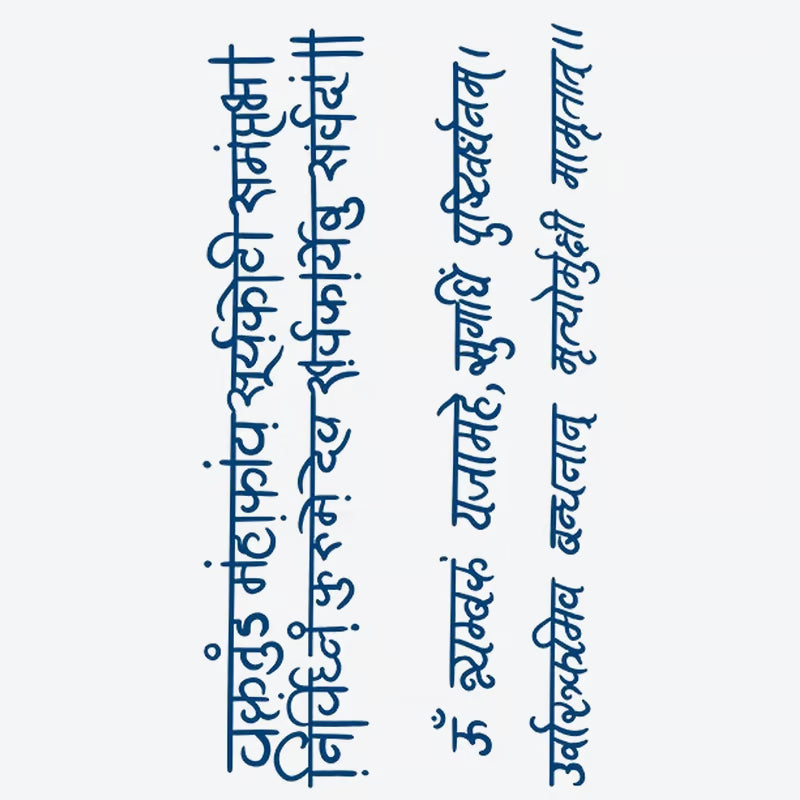 वक्रतुंड मंहाकांय सूर्यकोटी समप्रभ।
निर्विघ्नं कुरुमे देव सर्वकार्येषु सर्वदा॥
ॐ त्र्यम्बकं यजामहे, सुगन्धिं पुष्टिवर्धनम्।
उर्वारुकमिव बन्धनान् मृत्योर्मुक्षीय मामृतात्॥